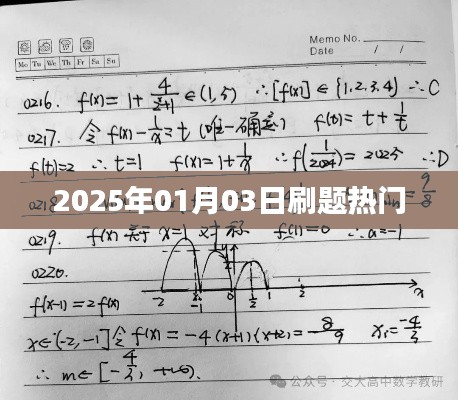 Memo No.
Date / /
Mo Tu We Th Fr Sa Su
0216. f(x)=1+4/(2^x+1)∈(1,5) ∴[f(x)]∈{1,2,3,4} ∴C
0217. 令f(x)-1/x=t (唯一确定) f(t)=t+1/t
f(t)=2 ∴t=1 f(x)=1+1/x ∴f(1/2024)=2025 ∴D
0218. 9/8
2025年01月03日刷题热门
0219. f(x)关于x=1对称 f(1)=0 ∴a=-1
0220.
-2 -1 0 1/2 1 x
f(x-1)=2f(x)
x∈[-2,-1]令f(x)=-4(x+1)(x+2)=8/9 x1=-4/3
∴m∈[-4/3,+∞).
公众号·交大高中数学教研